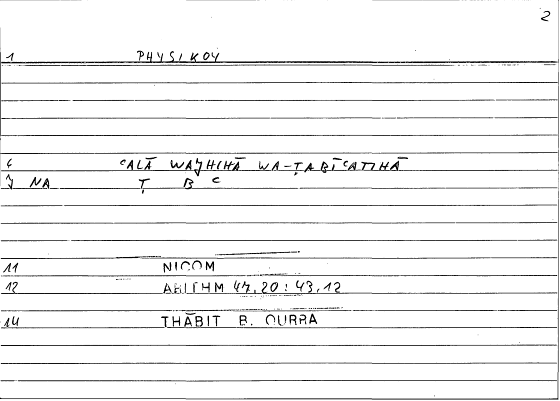 2
1 PHYSIKOY
6 ʿALĀ WAǦHIHĀ WA-ṬABĪʿATIHĀ
7 NA Ṭ B ʿ
11 NICOM
12 ARITHM 47,20 : 43,12
14 THĀBIT B. QURRA